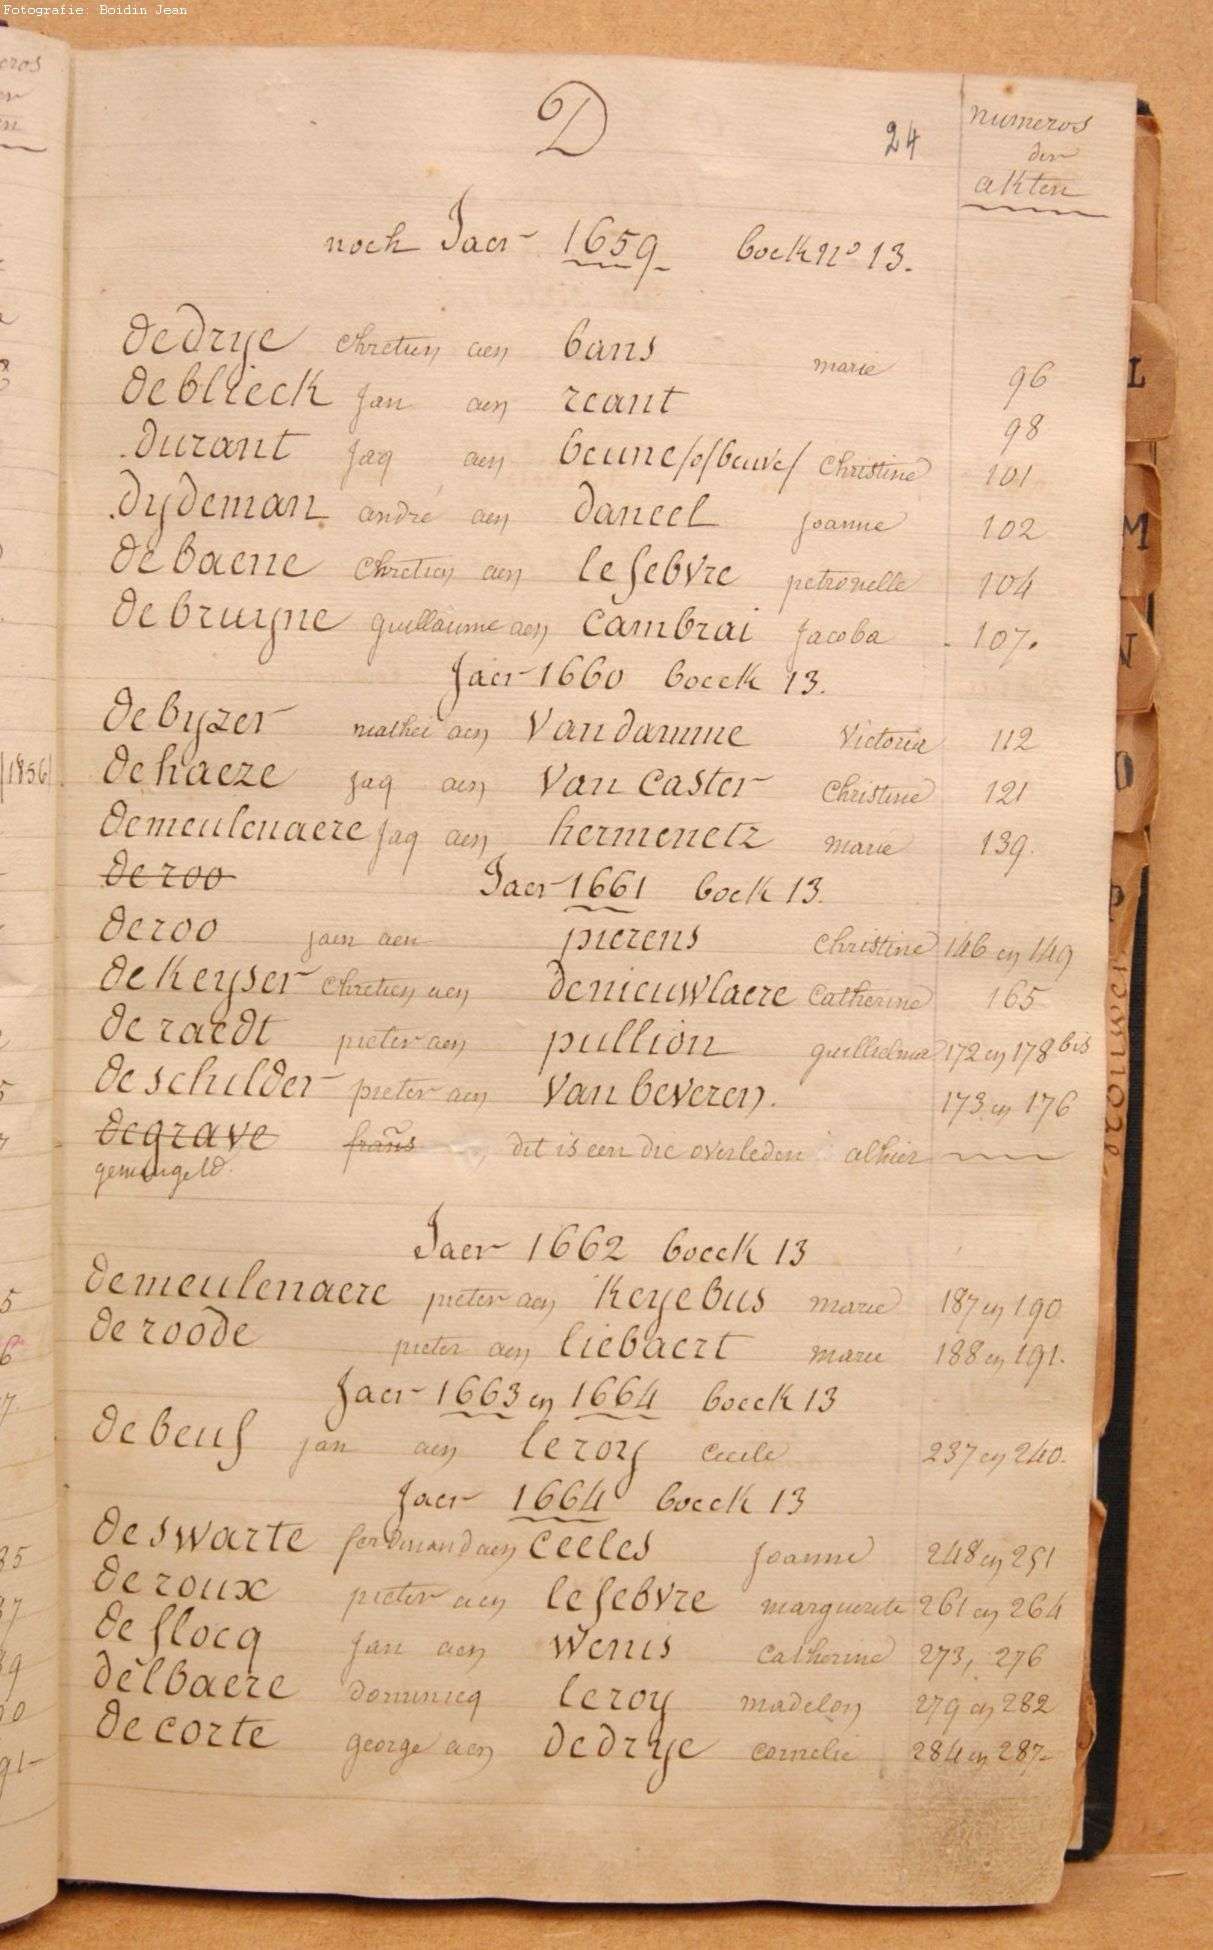 Fotografie: Boidin Jean
D
24
numeros
der
akten
noch Jaer 1659 boek No 13.
dedrye chretien aen bans marie 96
deblieck Jan aen reant 98
durant Jaq aen beune/of/beuve/ Christine 101
dydeman andré aen daneel Joanne 102
debaene Chretien aen lefebvre petronelle 104
debruyne guillaume aen Cambrai Jacoba 107.
Jaer 1660 boeck 13.
debyzer mathei aen Vandamme Victoria 112
dehaeze Jaq aen Van Caster Christine 121
demeulenaere Jaq aen hermenetz marie 139.
deroo Jaer 1661 boek 13.
deroo jaen aen pierens Christine 146 en 149
dekeyser Chretien aen denieuwlaere Catherine 165
deraedt pieter aen pullion guillielma 172 en 178 bis
deschilder pieter aen Van beveren. 173 en 176
degrave frans, dit is een die overleden alhier
gemengeld.
Jaer 1662 boeck 13
demeulenaere pieter aen Keyebus marie 187 en 190
deroode pieter aen liebaert marie 188 en 191.
Jaer 1663 en 1664 boeck 13
debeuf jan aen leroy Cecile 237 en 240.
Jaer 1664 boeck 13
deswarte ferdinand aen Ceeles Joanne 248 en 251
deroux pieter aen lefebvre marguerite 261 en 264
deflocq Jan aen Wenis Catherine 273, 276
delbaere dominicq leroy madelon 279 en 282
decorte george aen dedrye cornelie 284 en 287.
(1856)
L
M
N
O
P